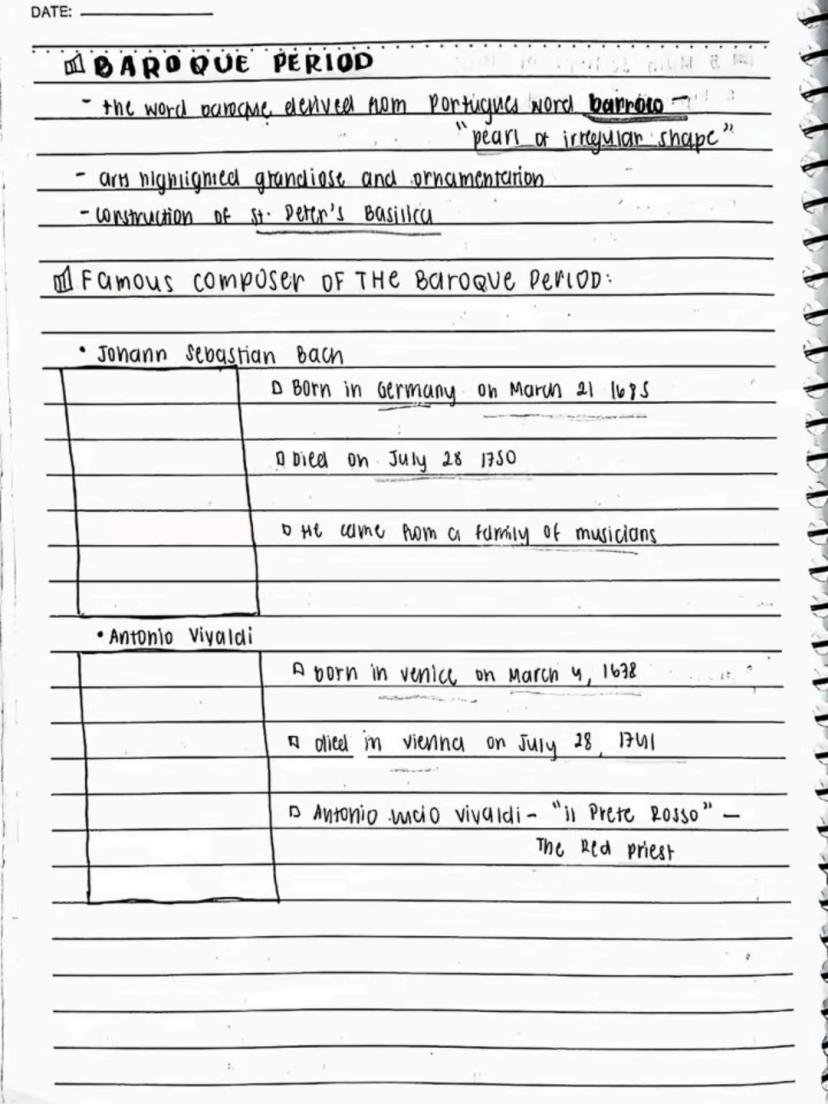 DATE:
BAROQUE PERIOD
- the word baroque derived from Portugues word barroco -
"pearl of irregular shape"
- arts highlighted grandiose and ornamentation
- construction of St. Peter's Basilica
Famous composer OF THE Baroque Period:
• Johann Sebastian Bach
Born in Germany on March 21 1685
Died on July 28 1750
He came from a family of musicians
• Antonio Vivaldi
born in venice on March 4, 1678
died in vienna on July 28, 1741
Antonio Lucio Vivaldi - "il Prete Rosso" -
The Red priest